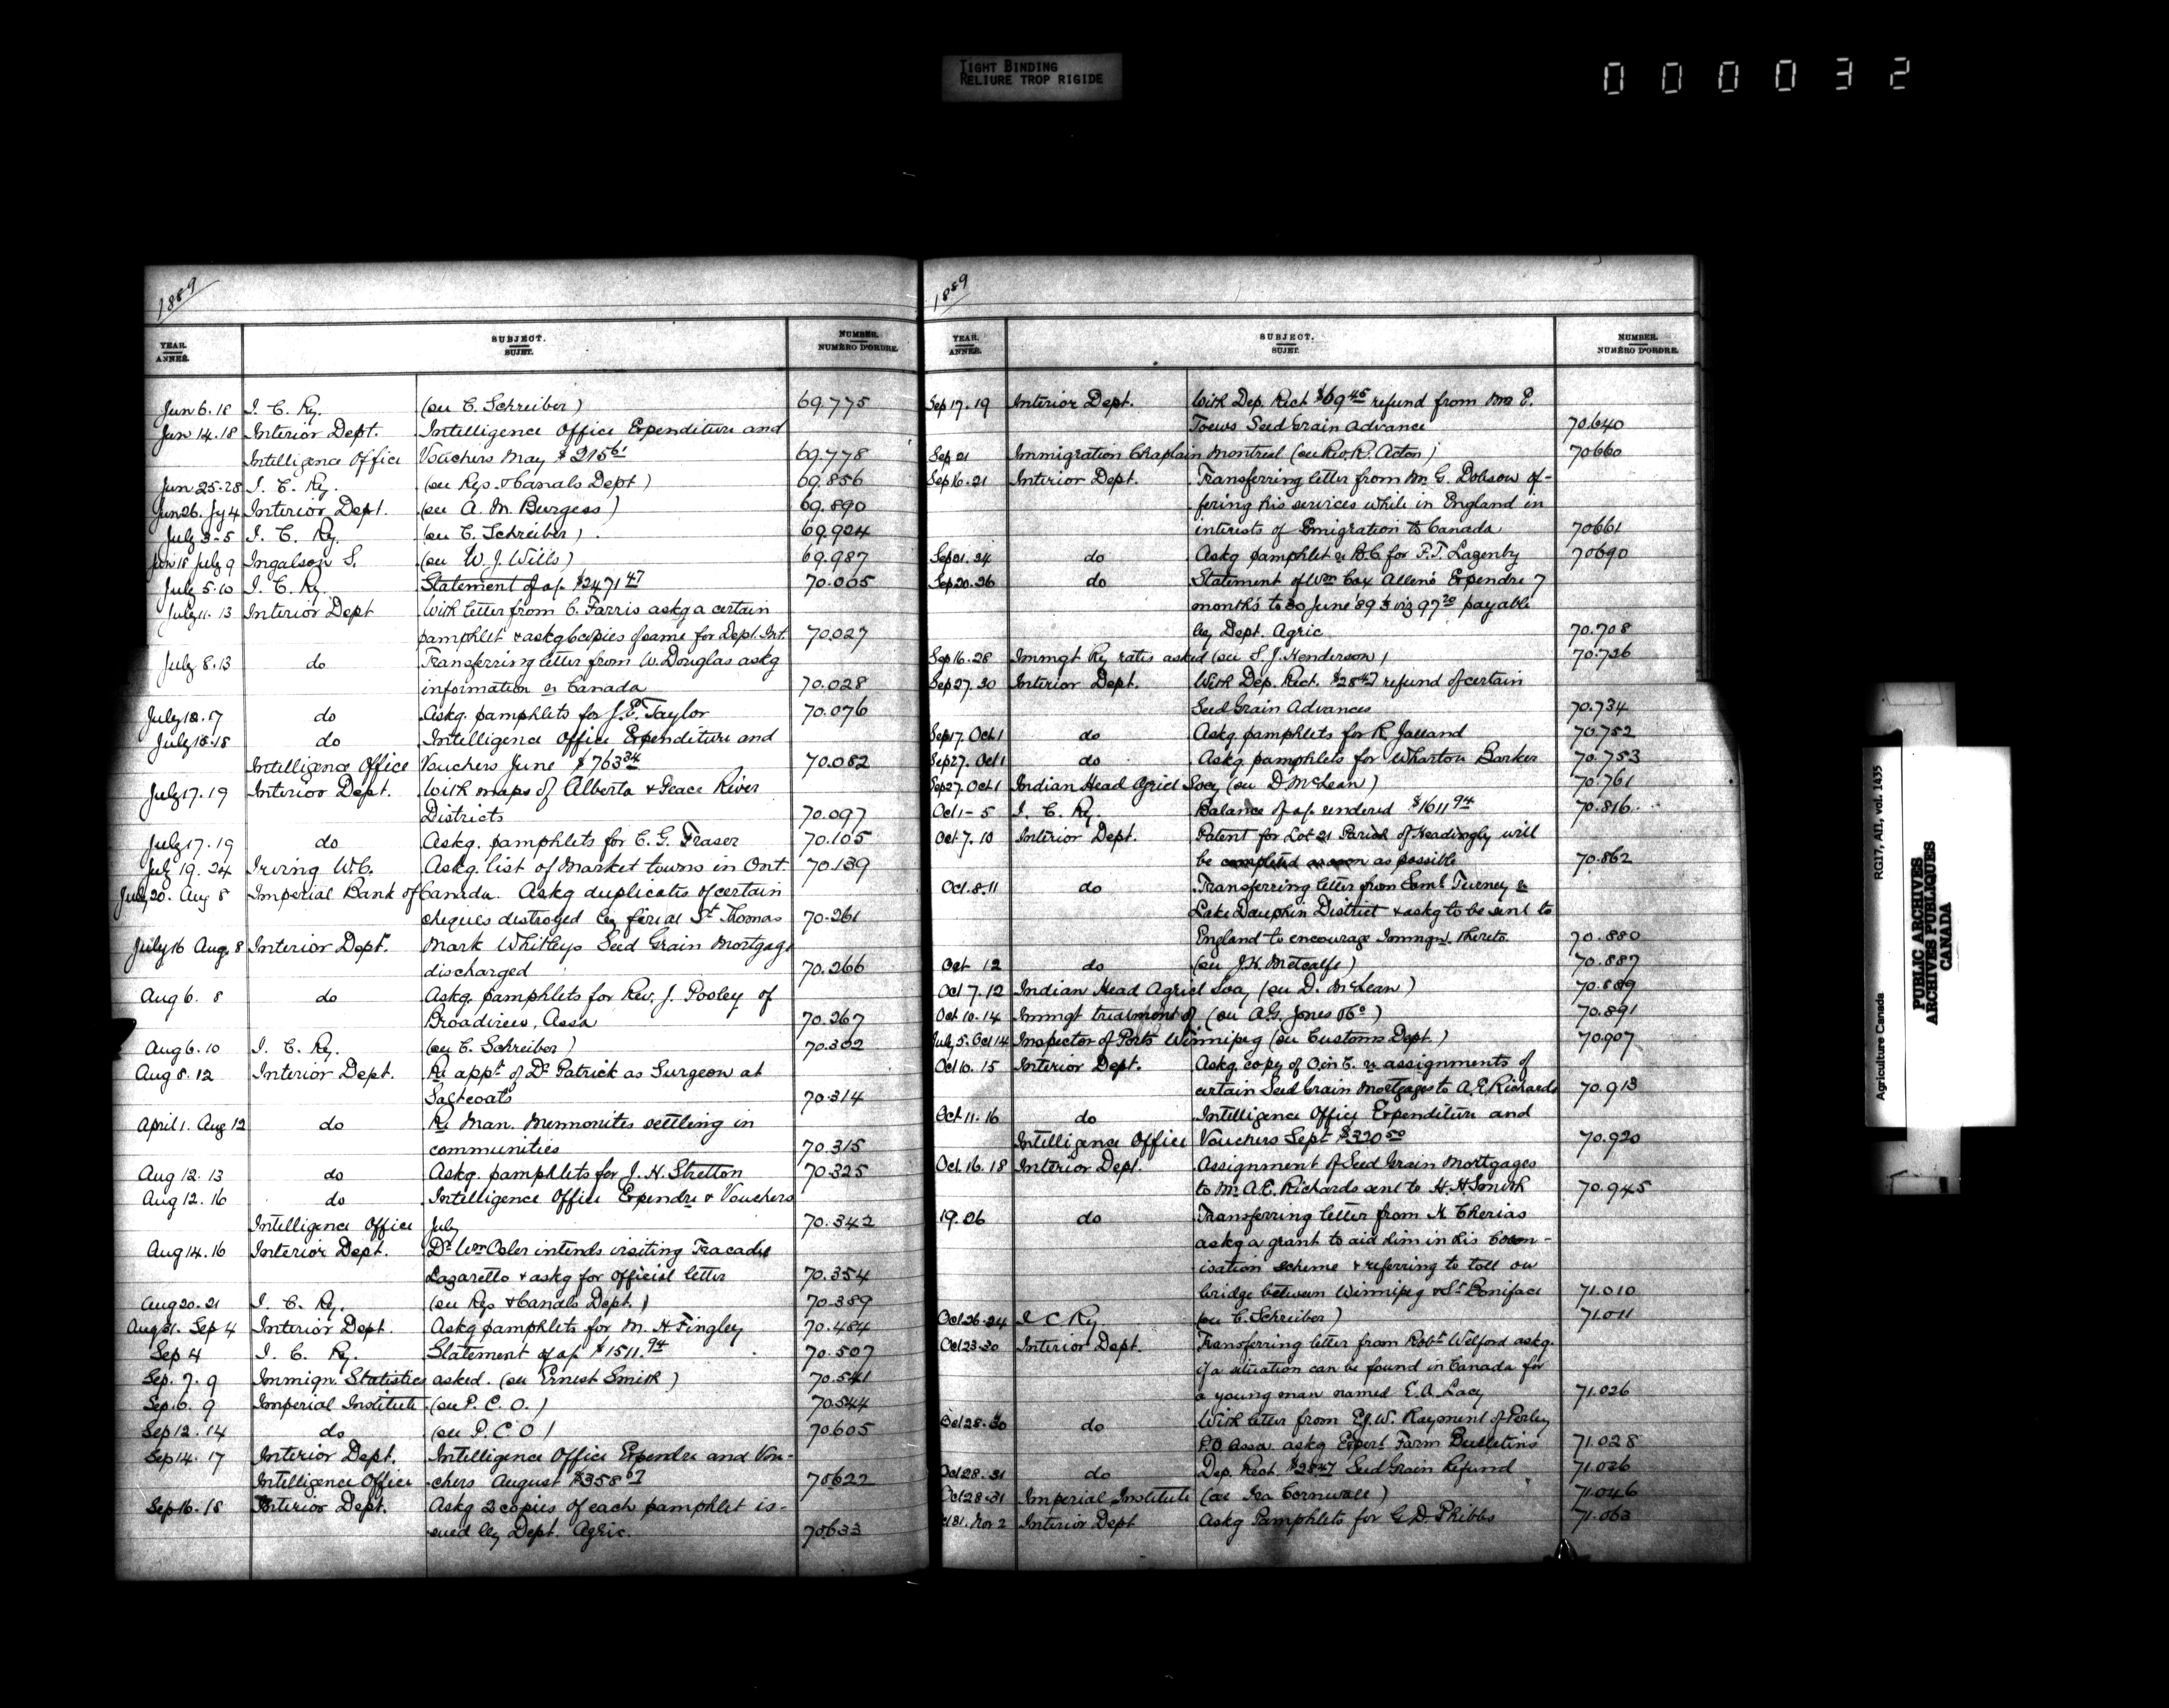 TIGHT BINDING
RELIURE TROP RIGIDE
000032
1889
YEAR. ANNÉE. SUBJECT. SUJET. NUMBER. NUMÉRO D'ORDRE.
Jun 6.18 I. C. Ry. (see C. Schreiber) 69.775
Jun 14.18 Interior Dept. Intelligence Office Expenditure and
Intelligence Office Vouchers May $215 61 69.778
Jun 25.28 I. C. Ry. (see Rys. & Canals Dept) 69.856
Jun 26. Jy 4 Interior Dept. (see A. M. Burgess) 69.890
July 3-5 I. C. Ry. (see C. Schreiber) 69.924
Jun 18 July 9 Ingalson S. (see W. J. Wills) 69.987
July 5.10 I. C. Ry. Statement of a/c $2471 47 70.005
July 11.13 Interior Dept With letter from C. Farris askg a certain
pamphlet & askg 6 copies of same for Dept. Int. 70.027
July 8.13 do Transferring letter from W. Douglas askg
information re Canada 70.028
July 12.17 do Askg. pamphlets for J. E. Taylor 70.076
July 15.18 do Intelligence Office Expenditure and
Intelligence Office Vouchers June $763 34 70.082
July 17.19 Interior Dept. With maps of Alberta & Peace River
Districts 70.097
July 17.19 do Askg. pamphlets for C. G. Fraser 70.105
July 19.24 Irving W. C. Askg. list of market towns in Ont. 70.139
July 20. Aug 8 Imperial Bank of Canada. Askg duplicates of certain
cheques distroyed by fire at St. Thomas 70.261
July 16 Aug. 8 Interior Dept. Mark Whitleys Seed Grain Mortgage
discharged 70.266
Aug 6. 8 do Askg. pamphlets for Rev. J. Pooley of
Broadview, Assa 70.267
Aug 6.10 I. C. Ry. (see C. Schreiber) 70.302
Aug 8.12 Interior Dept. Re appt. of Dr Patrick as Surgeon at
Saltcoats 70.314
April 1. Aug 12 do Re Man. Mennonites settling in
communities 70.315
Aug 12.13 do Askg. pamphlets for J. H. Stretton 70.325
Aug 12.16 do Intelligence Office Expendre & Vouchers
Intelligence Office July 70.342
Aug 14.16 Interior Dept. Dr Wm Osler intends visiting Tracadie
Lazaretto & askg for official letter 70.354
Aug 20.21 I. C. Ry. (see Rys & Canals Dept.) 70.389
Aug 31. Sep 4 Interior Dept. Askg pamphlets for M. H. Fingley 70.484
Sep 4 I. C. Ry. Statement of a/c $1511.94 70.507
Sep. 7. 9 Immign. Statistics asked. (see Ernest Smith) 70.541
Sep 6. 9 Imperial Institute (see P. C. O.) 70.544
Sep 12.14 do (see P. C. O) 70.605
Sep 14.17 Interior Dept. Intelligence Office Expendre and Vou-
Intelligence Office chers August $358 67 70.622
Sep 16.18 Interior Dept. Askg 2 copies of each pamphlet is-
sued by Dept. Agric. 70.633
1889
YEAR. ANNÉE. SUBJECT. SUJET. NUMBER. NUMÉRO D'ORDRE.
Sep 17.19 Interior Dept. With Dep. Rect. $69 45 refund from Mr P.
Toews Seed Grain Advance 70.640
Sep 21 Immigration Chaplain Montreal (see Rev. R. Acton) 70660
Sep 16.21 Interior Dept. Transferring letter from Mr G. Dobson of-
fering his services while in England in
interests of Emigration to Canada 70661
Sep 21.24 do Askg pamphlet re B.C. for F. T. Lazenby 70690
Sep 20.26 do Statement of Wm Cox Allen's Expendre 7
months to 30 June '89 $ viz 97 20 payable
by Dept. Agric 70.708
Sep 16.28 Immgt Ry rates asked (see S. J. Henderson) 70.726
Sep 27.30 Interior Dept. With Dep. Rect. $28 47 refund of certain
Seed Grain Advances 70.734
Sep 17. Oct 1 do Askg pamphlets for R Jalland 70.752
Sep 27. Oct 1 do Askg pamphlets for Wharton Barker 70.753
Sep 27. Oct 1 Indian Head Agricl Socy (see D McLean) 70.761
Oct 1-5 I. C. Ry. Balance of a/c rendered $1611 94 70.816
Oct 7.10 Interior Dept. Patent for Lot 21 Parish of Headingly will
be completed as soon as possible 70.862
Oct. 8.11 do Transferring letter from Saml. Turney re
Lake Dauphin District & askg to be sent to
England to encourage Immign. thereto. 70.880
Oct 12 do (see J. H. Metcalfe) 70.887
Oct 7.12 Indian Head Agricl Soc, (see D. McLean) 70.889
Oct 10.14 Immgt treatment of (see A. G. Jones & Co) 70.891
July 5. Oct 14 Inspector of Ports Winnipeg (see Customs Dept.) 70907
Oct 10.15 Interior Dept. Askg. copy of O in C. re assignments of
certain Seed Grain Mortgages to A. E. Richards 70.913
Oct 11.16 do Intelligence Office Expenditure and
Intelligence Office Vouchers Sept $320 50 70.920
Oct. 16.18 Interior Dept. Assignment of Seed Grain Mortgages
to Mr A. E. Richards sent to H. H Smith 70.945
19.26 do Transferring letter from H Cherias
askg a grant to aid him in his Colon-
isation scheme & referring to toll on
bridge between Winnipeg & St. Boniface 71.010
Oct 26.24 I C Ry (see C. Schreiber) 71.011
Oct 23.30 Interior Dept. Transferring letter from Robt Welford askg.
if a situation can be found in Canada for
a young man named E. A. Lacy 71.026
Oct 28.30 do With letter from W. Rayment of Perley
P.O Assa askg Exper. Farm Bulletins 71.028
Oct 28.31 do Dep. Rect. $28 47 Seed Grain Refund 71.036
Oct 28.31 Imperial Institute (see Ira Cornwall) 71.046
Oct 31. Nov 2 Interior Dept Askg Pamphlets for G D. Phibbs 71.063
Agriculture Canada RG17, AII, vol. 1435
PUBLIC ARCHIVES
ARCHIVES PUBLIQUES
CANADA